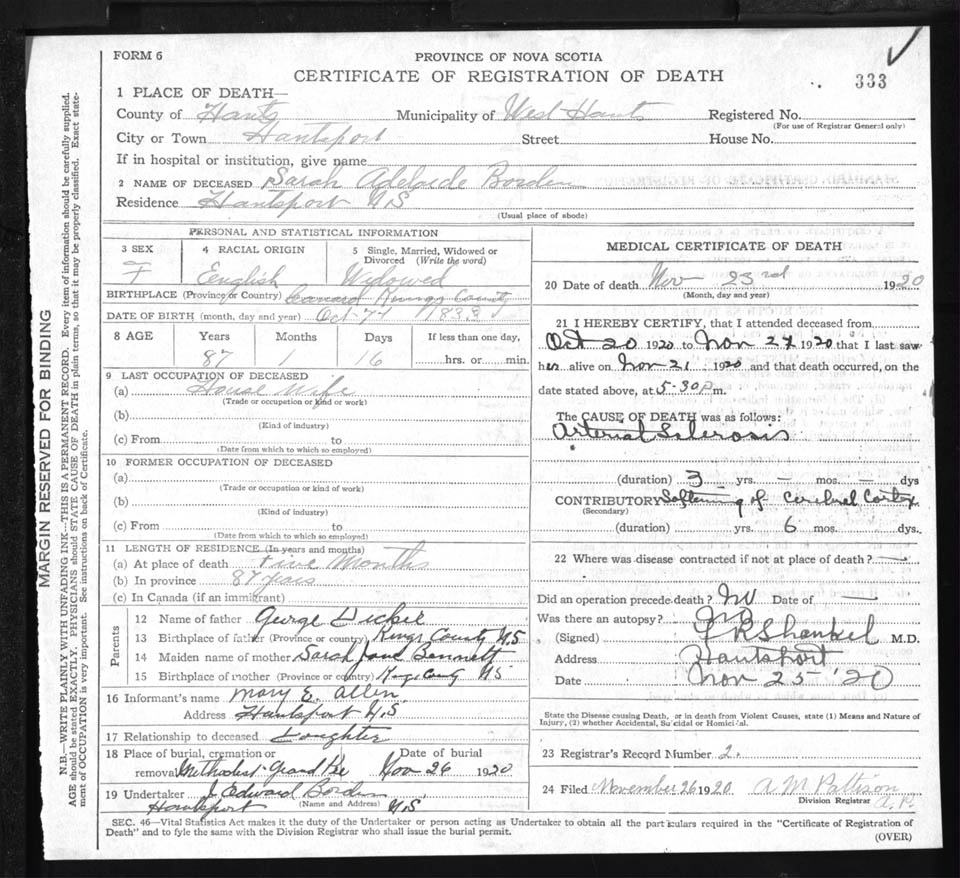 FORM 6
PROVINCE OF NOVA SCOTIA
CERTIFICATE OF REGISTRATION OF DEATH
333
1 PLACE OF DEATH—
County of Hants Municipality of West Hants Registered No.
(For use of Registrar General only)
City or Town Hantsport Street House No.
If in hospital or institution, give name
2 NAME OF DECEASED Sarah Adelaide Borden
Residence Hantsport N S
(Usual place of abode)
PERSONAL AND STATISTICAL INFORMATION
3 SEX 4 RACIAL ORIGIN 5 Single, Married, Widowed or Divorced (Write the word)
F English Widowed
BIRTHPLACE (Province or Country) Canard Kings County
DATE OF BIRTH (month, day and year) Oct 7th 1833
8 AGE Years Months Days If less than one day,
87 1 16 hrs. or min.
9 LAST OCCUPATION OF DECEASED
(a) House Wife
(Trade or occupation or kind or work)
(b)
(Kind of industry)
(c) From to
(Date from which to which so employed)
10 FORMER OCCUPATION OF DECEASED
(a)
(Trade or occupation or kind of work)
(b)
(Kind of industry)
(c) From to
(Date from which to which so employed)
11 LENGTH OF RESIDENCE (In years and months)
(a) At place of death Five Months
(b) In province 87 years
(c) In Canada (if an immigrant)
Parents
12 Name of father George
13 Birthplace of father (Province or country) Kings County N S
14 Maiden name of mother Sarah Jane Bennett
15 Birthplace of mother (Province or country) Kings County N S
16 Informant's name Mary E. Allen
Address Hantsport N.S
17 Relationship to deceased Doughter
18 Place of burial, cremation or Date of burial
removal Methodist Nov 26 1920
19 Undertaker J. Edward Borden
Hantsport (Name and Address) N S
MEDICAL CERTIFICATE OF DEATH
20 Date of death Nov 23rd 1920
(Month, day and year)
21 I HEREBY CERTIFY, that I attended deceased from
Oct 20 1920 to Nov 1920 that I last saw
her alive on Nov 21 1920 and that death occurred, on the
date stated above, at 5-30 p m.
The CAUSE OF DEATH was as follows:
Arterial Sclerosis
(duration) 3 yrs. — mos. — dys
CONTRIBUTORY Softening of Cerebral Cortex
(Secondary)
(duration) yrs. 6 mos. dys.
22 Where was disease contracted if not at place of death? —
Did an operation precede death? No Date of —
Was there an autopsy? No
(Signed) Shankel M.D.
Address Hantsport
Date Nov 25 '20
State the Disease causing Death, or in death from Violent Causes, state (1) Means and Nature of
Injury, (2) whether Accidental, Suicidal or Homicidal.
23 Registrar's Record Number 2.
24 Filed November 26 1920 A M Pattison
Division Registrar
SEC. 46—Vital Statistics Act makes it the duty of the Undertaker or person acting as Undertaker to obtain all the particulars required in the "Certificate of Registration of
Death" and to fyle the same with the Division Registrar who shall issue the burial permit.
(OVER)
MARGIN RESERVED FOR BINDING
N.B.—WRITE PLAINLY WITH UNFADING INK—THIS IS A PERMANENT RECORD. Every item of information should be carefully supplied.
AGE should be stated EXACTLY. PHYSICIANS should STATE CAUSE OF DEATH in plain terms, so that it may be properly classified. Exact state-
ment of OCCUPATION is very important. See instructions on back of Certificate.